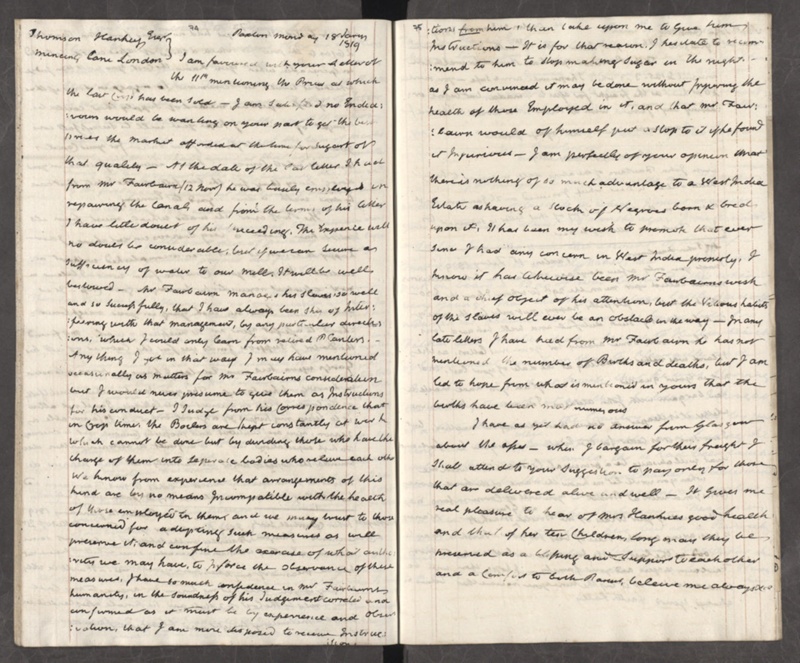 74
Thomson Hankey Esqr
Mincing Lane London
Paxton Monday 18 Jany
1819
I am favoured with your letter of
the 11th mentioning the Prices at which
the last has been sold — I am satisfied no Endea:
:vour would be wanting on your part to get the best
prices the market afforded at the time for Sugars of
that quality — At the date of the last letter I had
from Mr Fairbairn (12 Novr) he was busily employed in
repairing the Canal and from the terms of his letter
I have little doubt of his succeeding. The Expence will
no doubt be considerable, but if we can secure a
Sufficiency of water to our mills, It will be well
bestowed — Mr Fairbairn manages his slaves so well
and so successfully, that I have always been shy of Inter:
:fering with that management, by any particular direct:
:ions, which I could only learn from retired Planters. —
Any thing I in that way I may have mentioned
occasionally as matters for Mr Fairbairns consideration
but I would never presume to give them as Instructions
for his conduct — I Judge from his Correspondence that
in Crop time the Boilers are kept constantly at work
which cannot be done but by dividing those who have the
charge of them into separate bodies who relieve each other
We know from experience that arrangements of this
kind are by no means Incompatible with the health
of those employed in them, and we may trust to those
concerned for adopting such measures as will
preserve it, and confine the exercise of what autho:
:rity we may have, to Inforce the observance of these
measures, I have so much confidence in Mr Fairbairns
humanity, in the soundness of his Judgement corrected and
confirmed as it must be by experience and obser
:vation, that I am more disposed to receive Instruc:
:tions
75
:tions from him, than take upon me to Give him
Instructions — It is for that reason I hesitate to recom
:mend to him to stop making Sugar in the night. —
as I am convinced it may be done without Injuring the
health of those Employed in it, and that Mr Fair:
:bairn would of himself put a stop to it if he found
it Injurious — I am perfectly of your opinion that
there is nothing of so much advantage to a West India
Estate as having a stock of Negroes born & bred
upon it, It has been my wish to promote that ever
since I had any concern in West India property, I
know it has likewise been Mr Fairbairns wish
and a chief object of his attention, but the Vicious habits
of the slaves will ever be an obstacle in the way — In any
late letters I have had from Mr Fairbairn he has not
mentioned the number of Births and deaths, but I am
led to hope from what is mentioned in yours that the
births have been most numerous
I have as yet had no answer from Glasgow
about the — when I bargain for their freight I
shall attend to your Suggestion to pay only for those
that are delivered alive and well — It gives me
real pleasure to hear of Mrs Hankeys good health
and that of her ten Children, long may they be
preserved as a helping and Support to each other
and a Comfort to both Parents, beleive me always &c